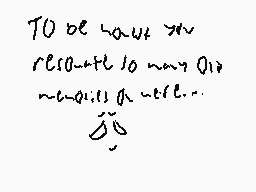 TO be honest you
resonate so many old
memories on here...